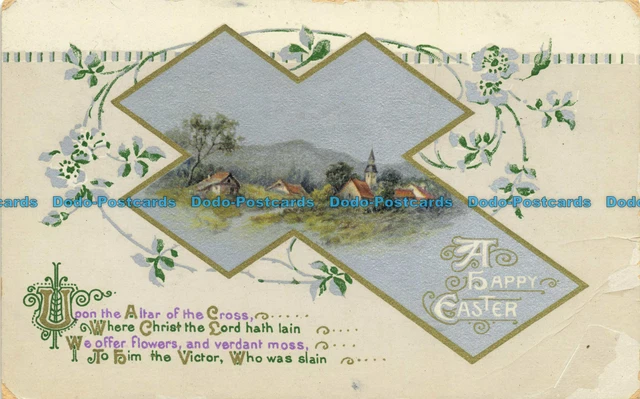 A
HAPPY
EASTER
Dodo-Postcards Dodo-Postcards Dodo-Postcards Dodo-Postcards Dodo-Postcards
Upon the Altar of the Cross,
Where Christ the Lord hath lain
We offer flowers, and verdant moss,
To Him the Victor, Who was slain